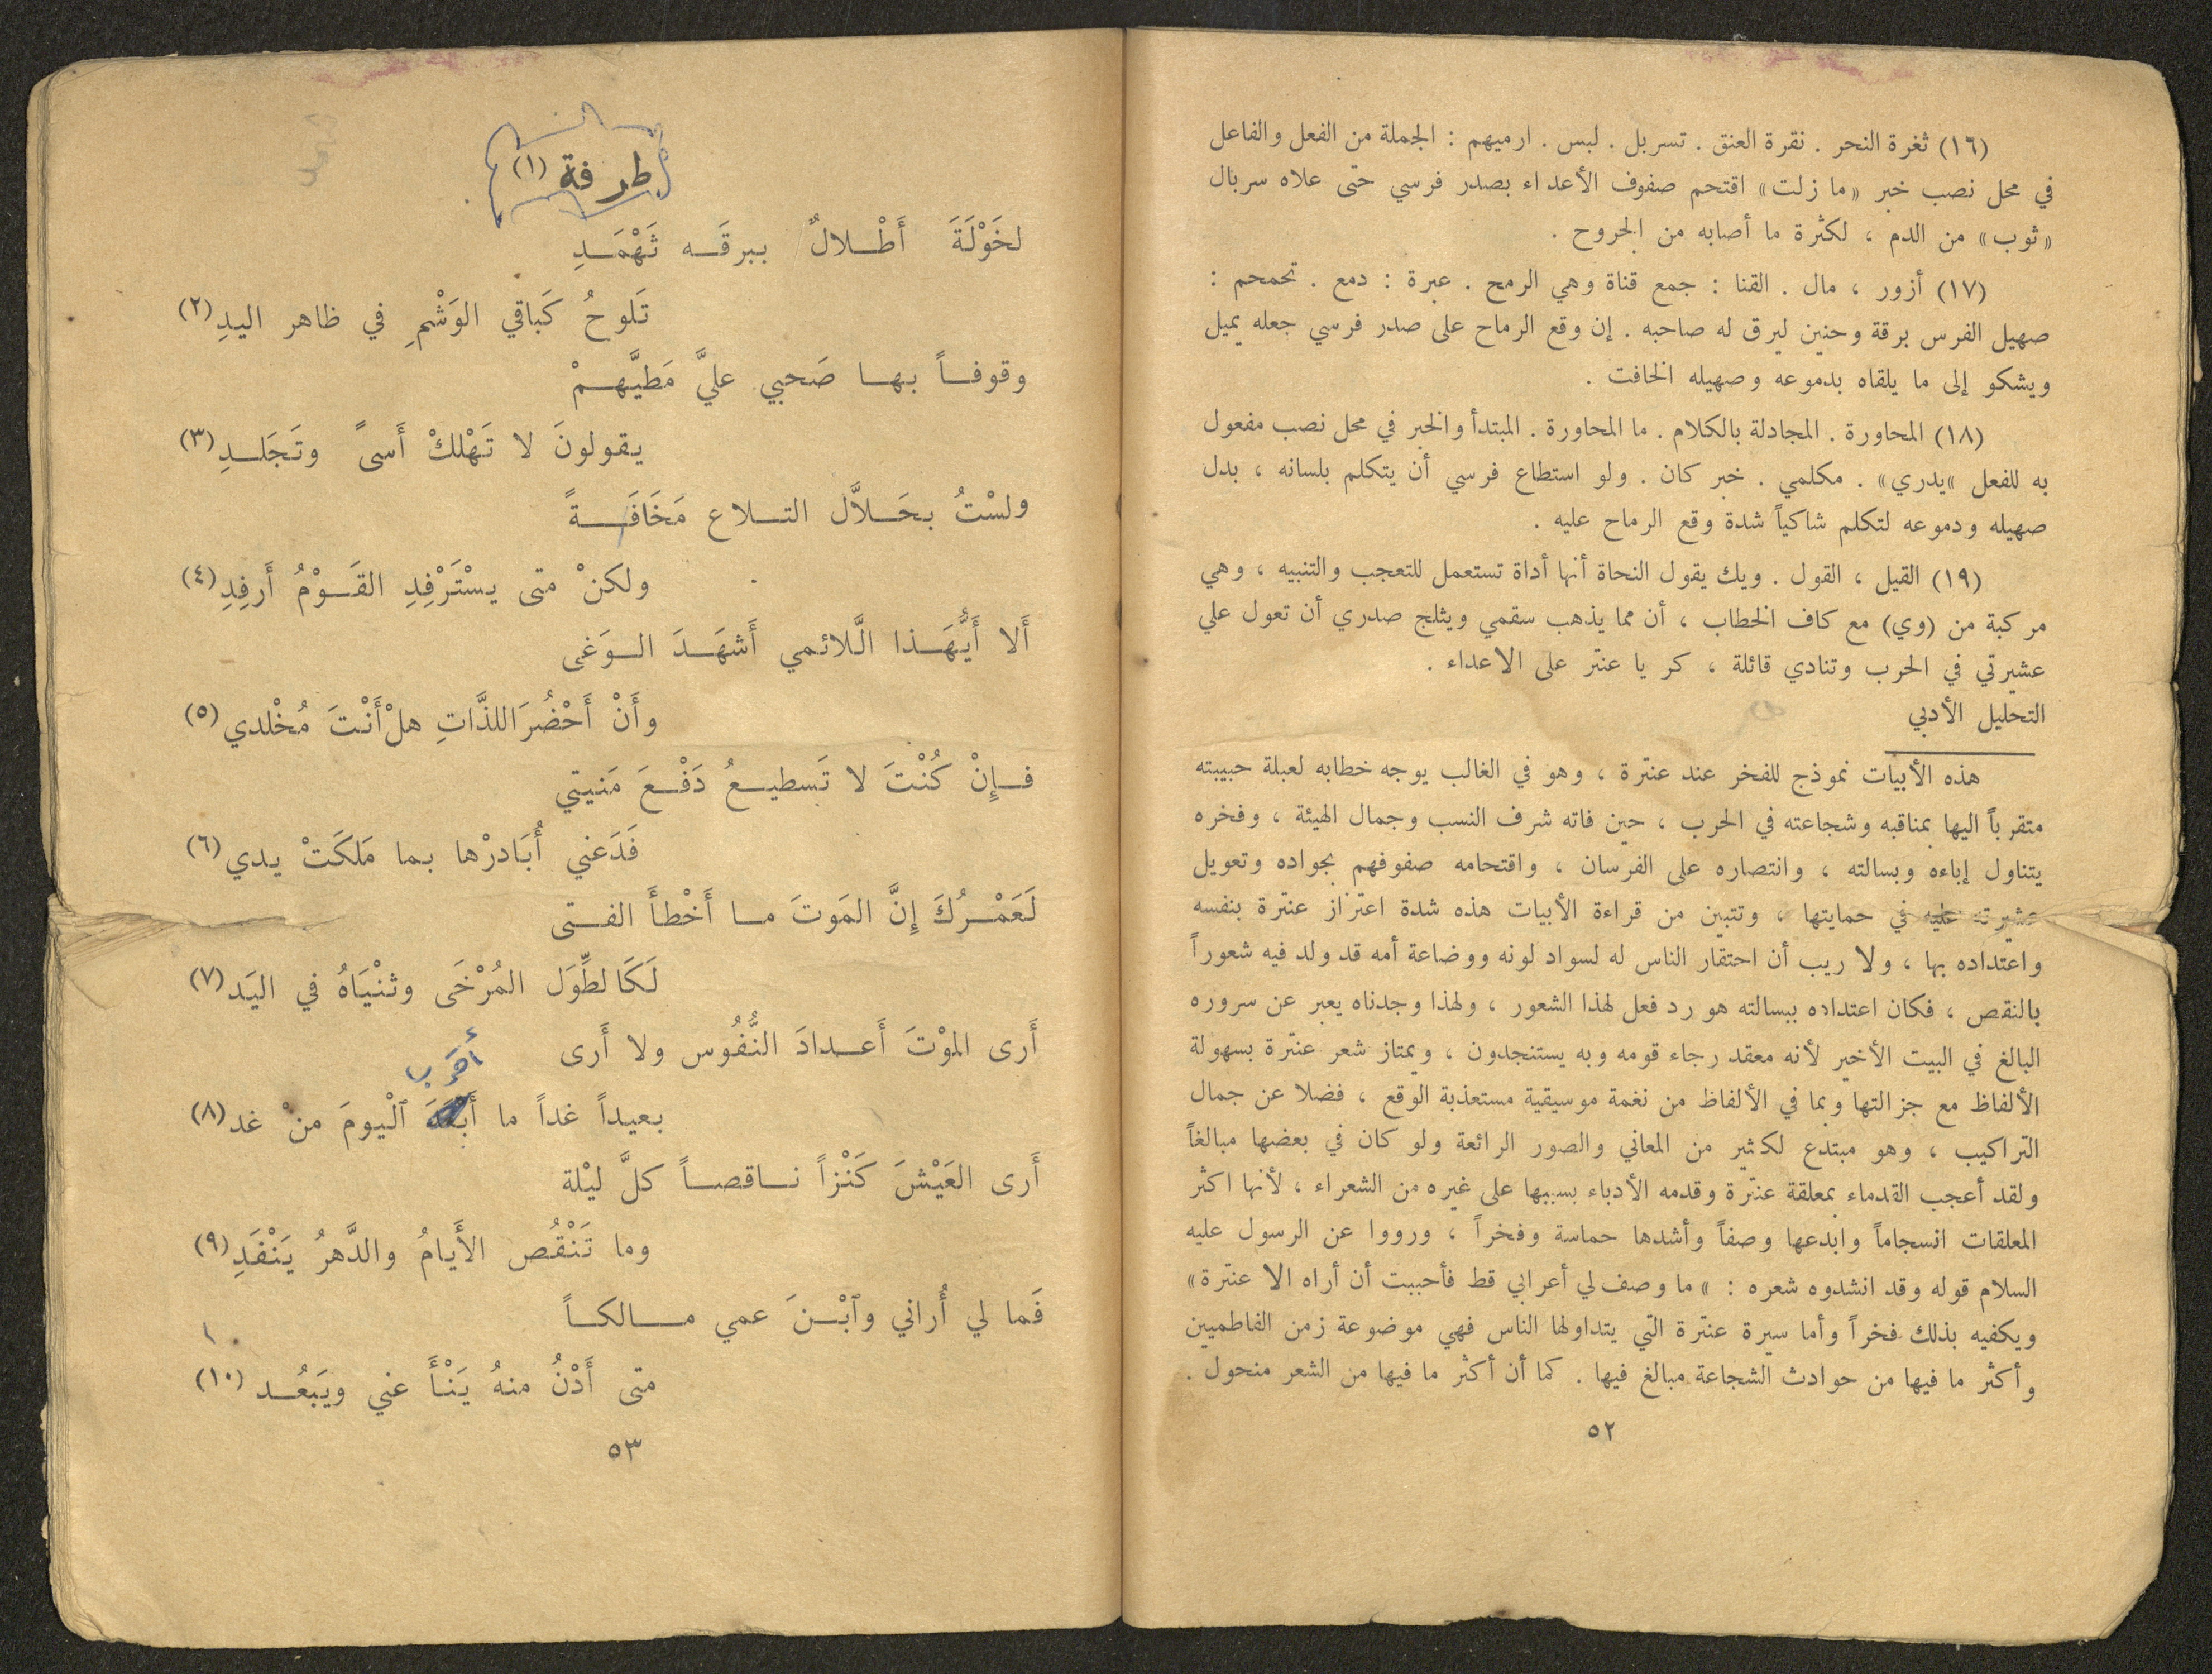 (١٦) ثغرة النحر . نقرة العنق . تسربل . لبس . ارميهم : الجملة من الفعل والفاعل
في محل نصب خبر «ما زلت» اقتحم صفوف الأعداء بصدر فرسي حتى علاه سربال
«ثوب» من الدم ، لكثرة ما أصابه من الجروح .
(١٧) أزور ، مال . القنا : جمع قناة وهي الرمح . عبرة : دمع . تحمحم :
صهيل الفرس برقة وحنين ليرق له صاحبه . إن وقع الرماح على صدر فرسي جعله يميل
ويشكو إلى ما يلقاه بدموعه وصهيله الخافت .
(١٨) المحاورة . المجادلة بالكلام . ما المحاورة . المبتدأ والخبر في محل نصب مفعول
به للفعل «يدري» . مكلمي . خبر كان . ولو استطاع فرسي أن يتكلم بلسانه ، بدل
صهيله ودموعه لتكلم شاكياً شدة وقع الرماح عليه .
(١٩) القيل ، القول . ويك يقول النحاة أنها أداة تستعمل للتعجب والتنبيه ، وهي
مركبة من (وي) مع كاف الخطاب ، أن مما يذهب سقمي ويثلج صدري أن تعول علي
عشيرتي في الحرب وتنادي قائلة ، كر يا عنتر على الاعداء .
التحليل الأدبي
هذه الأبيات نموذج للفخر عند عنترة ، وهو في الغالب يوجه خطابه لعبلة حبيبته
متقرباً اليها بمناقبه وشجاعته في الحرب ، حين فاته شرف النسب وجمال الهيئة ، وفخره
يتناول إباءه وبسالته ، وانتصاره على الفرسان ، واقتحامه صفوفهم بجواده وتعويل
عشيرته عليه في حمايتها ، وتتبين من قراءة الأبيات هذه شدة اعتزاز عنترة بنفسه
واعتداده بها ، ولا ريب أن احتقار الناس له لسواد لونه ووضاعة أمه قد ولد فيه شعوراً
بالنقص ، فكان اعتداده ببسالته هو رد فعل لهذا الشعور ، ولهذا وجدناه يعبر عن سروره
البالغ في البيت الأخير لأنه معقد رجاء قومه وبه يستنجدون ، ويمتاز شعر عنترة بسهولة
الألفاظ مع جزالتها وبما في الألفاظ من نغمة موسيقية مستعذبة الوقع ، فضلا عن جمال
التراكيب ، وهو مبتدع لكثير من المعاني والصور الرائعة ولو كان في بعضها مبالغاً
ولقد أعجب القدماء بمعلقة عنترة وقدمه الأدباء بسببها على غيره من الشعراء ، لأنها اكثر
المعلقات انسجاماً وابدعها وصفاً وأشدها حماسة وفخراً ، ورووا عن الرسول عليه
السلام قوله وقد انشدوه شعره : «ما وصف لي أعرابي قط فأحببت أن أراه الا عنترة»
ويكفيه بذلك فخراً وأما سيرة عنترة التي يتداولها الناس فهي موضوعة زمن الفاطميين
وأكثر ما فيها من حوادث الشجاعة مبالغ فيها . كما أن أكثر ما فيها من الشعر منحول .
٥٢
طرفة (١)
لخَوْلَةَ أَطْلالٌ ببرقَه ثَهْمَدِ
تَلوحُ كَباقي الوَشْمِ في ظاهر اليدِ (٢)
وقوفاً بها صَحبي عليَّ مَطيَّهمْ
يقولونَ لا تَهْلكْ أَسىً وتَجَلدِ (٣)
ولسْتُ بحَلاَّل التلاع مَخَافَةً
ولكنْ متى يسْتَرْفِدِ القَوْمُ أَرفِدِ (٤)
أَلا أَيُّهَذا الَّلائمي أَشهَدَ الوَغى
وأَنْ أَحْضُرَ اللذَّاتِ هلْ أَنْتَ مُخْلدي (٥)
فإِنْ كُنْتَ لا تَسطيعُ دَفْعَ مَنيتي
فَدَعني أُبَادرْها بما مَلكَتْ يدي (٦)
لَعَمْرُكَ إِنَّ المَوتَ ما أَخْطأَ الفتى
لَكَالطِّوَل المُرْخَى وثنْيَاهُ في اليَد (٧)
أَرى الموْتَ أَعدادَ النُّفُوس ولا أَرى
أقرب
بعيداً غداً ما ٱلْيومَ منْ غد (٨)
أَرى العَيْشَ كَنْزاً ناقصاً كلَّ ليْلة
وما تَنْقُص الأَيامُ والدَّهرُ يَنْفَدِ (٩)
فَما لي أُراني وٱبْنَ عمي مالكاً
متى أَدْنُ منهُ يَنْأَ عني ويَبعُد (١٠)
٥٣